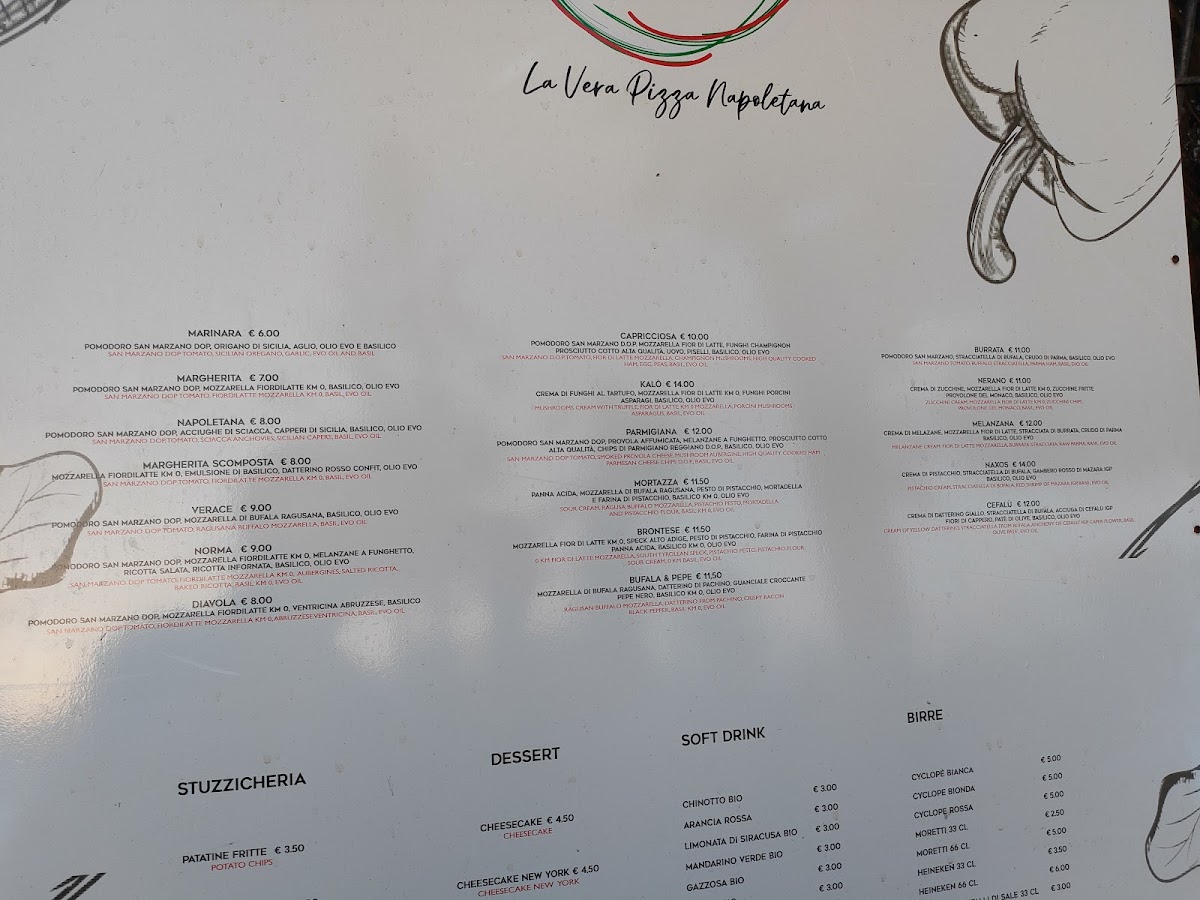 La Vera Pizza Napoletana
MARINARA € 6.00
POMODORO SAN MARZANO DOP, ORIGANO DI SICILIA, AGLIO, OLIO EVO E BASILICO
SAN MARZANO DOP TOMATO, SICILIAN OREGANO, GARLIC, EVO OIL AND BASIL
MARGHERITA € 7.00
POMODORO SAN MARZANO DOP, MOZZARELLA FIORDILATTE KM 0, BASILICO, OLIO EVO
SAN MARZANO DOP TOMATO, FIORDILATTE MOZZARELLA KM 0, BASIL, EVO OIL
NAPOLETANA € 8.00
POMODORO SAN MARZANO DOP, ACCIUGHE DI SCIACCA, CAPPERI DI SICILIA, BASILICO, OLIO EVO
SAN MARZANO DOP TOMATO, SCIACCA ANCHOVIES, SICILIAN CAPERS, BASIL, EVO OIL
MARGHERITA SCOMPOSTA € 8.00
MOZZARELLA FIORDILATTE KM 0, EMULSIONE DI BASILICO, DATTERINO ROSSO CONFIT, OLIO EVO
SAN MARZANO DOP TOMATO, FIORDILATTE MOZZARELLA KM 0, BASIL, EVO OIL
VERACE € 9.00
POMODORO SAN MARZANO DOP, MOZZARELLA DI BUFALA RAGUSANA, BASILICO, OLIO EVO
SAN MARZANO DOP TOMATO, RAGUSANA BUFFALO MOZZARELLA, BASIL, EVO OIL
NORMA € 9.00
POMODORO SAN MARZANO DOP, MOZZARELLA FIORDILATTE KM 0, MELANZANE A FUNGHETTO,
RICOTTA SALATA, RICOTTA INFORNATA, BASILICO, OLIO EVO
SAN MARZANO DOP TOMATO, FIORDILATTE MOZZARELLA KM 0, AUBERGINES, SALTED RICOTTA,
BAKED RICOTTA, BASIL KM 0, EVO OIL
DIAVOLA € 8.00
POMODORO SAN MARZANO DOP, MOZZARELLA FIORDILATTE KM 0, VENTRICINA ABRUZZESE, BASILICO
SAN MARZANO DOP TOMATO, FIORDILATTE MOZZARELLA KM 0, ABRUZZESE VENTRICINA, BASIL, EVO OIL
CAPRICCIOSA € 10.00
POMODORO SAN MARZANO D.O.P, MOZZARELLA FIOR DI LATTE, FUNGHI CHAMPIGNON
PROSCIUTTO COTTO ALTA QUALITA, UOVO, PISELLI, BASILICO, OLIO EVO
SAN MARZANO D.O.P TOMATO, FIOR DI LATTE MOZZARELLA, CHAMPIGNON MUSHROOMS, HIGH QUALITY COOKED
HAM, EGG, PEAS, BASIL, EVO OIL
KALÒ € 14.00
CREMA DI FUNGHI AL TARTUFO, MOZZARELLA FIOR DI LATTE KM 0, FUNGHI PORCINI
ASPARAGI, BASILICO, OLIO EVO
MUSHROOMS CREAM WITH TRUFFLE, FIOR DI LATTE KM 0 MOZZARELLA, PORCINI MUSHROOMS
ASPARAGUS, BASIL, EVO OIL
PARMIGIANA € 12.00
POMODORO SAN MARZANO DOP, PROVOLA AFFUMICATA, MELANZANE A FUNGHETTO, PROSCIUTTO COTTO
ALTA QUALITA, CHIPS DI PARMIGIANO REGGIANO D.O.P, BASILICO, OLIO EVO
SAN MARZANO DOP TOMATO, SMOKED PROVOLA CHEESE, MUSHROOM AUBERGINE, HIGH QUALITY COOKED HAM
PARMESAN CHEESE CHIPS D.O.P, BASIL, EVO OIL
MORTAZZA € 11.50
PANNA ACIDA, MOZZARELLA DI BUFALA RAGUSANA, PESTO DI PISTACCHIO, MORTADELLA
E FARINA DI PISTACCHIO, BASILICO KM 0, OLIO EVO
SOUR CREAM, RAGUSA BUFFALO MOZZARELLA, PISTACHIO PESTO, MORTADELLA
AND PISTACHIO FLOUR, BASIL KM 0, EVO OIL
BRONTESE € 11.50
MOZZARELLA FIOR DI LATTE KM 0, SPECK ALTO ADIGE, PESTO DI PISTACCHIO, FARINA DI PISTACCHIO
PANNA ACIDA, BASILICO KM 0, OLIO EVO
0 KM FIOR DI LATTE MOZZARELLA, SOUTH TYROLEAN SPECK, PISTACHIO PESTO, PISTACHIO FLOUR
SOUR CREAM, 0 KM BASIL, EVO OIL
BUFALA & PEPE € 11,50
MOZZARELLA DI BUFALA RAGUSANA, DATTERINO DI PACHINO, GUANCIALE CROCCANTE
PEPE NERO, BASILICO KM 0, OLIO EVO
RAGUSAN BUFFALO MOZZARELLA, DATTERINO FROM PACHINO, CRISPY BACON
BLACK PEPPER, BASIL KM 0, EVO OIL
BURRATA € 11.00
POMODORO SAN MARZANO, STRACCIATELLA DI BUFALA, CRUDO DI PARMA, BASILICO, OLIO EVO
SAN MARZANO TOMATO, BUFFALO STRACCIATELLA, PARMA HAM, BASIL, EVO OIL
NERANO € 11.00
CREMA DI ZUCCHINE, MOZZARELLA FIOR DI LATTE KM 0, ZUCCHINE FRITTE
PROVOLONE DEL MONACO, BASILICO, OLIO EVO
ZUCCHINI CREAM, MOZZARELLA FIOR DI LATTE KM 0, ZUCCHINI CHIPS,
PROVOLONE DEL MONACO, BASIL, EVO OIL
MELANZANA € 12.00
CREMA DI MELANZANE, MOZZARELLA FIOR DI LATTE, STRACCIATA DI BURRATA, CRUDO DI PARMA
BASILICO, OLIO EVO
MELANZANE CREAM, FIOR DI LATTE MOZZARELLA, BURRATA STRACCIATA, RAW PARMA, BASIL, EVO OIL
NAXOS € 14.00
CREMA DI PISTACCHIO, STRACCIATELLA DI BUFALA, GAMBERO ROSSO DI MAZARA IGP
BASILICO, OLIO EVO
PISTACHIO CREAM, STRACIATELLA DI BUFALA, RED SHRIMP OF MAZARA IGP, BASIL, EVO OIL
CEFALÙ € 12.00
CREMA DI DATTERINO GIALLO, STRACCIATELLA DI BUFALA, ACCIUGA DI CEFALÙ IGP
FIORI DI CAPPERO, PATÈ DI OLIVE, BASILICO, OLIO EVO
CREAM OF YELLOW DATTERINO, STRACCIATELLA FROM BUFALA, ANCHOVY OF CEFALÙ IGP, CAPER FLOWER, BASIL
OLIVE PATE, EVO OIL
STUZZICHERIA
PATATINE FRITTE € 3.50
POTATO CHIPS
DESSERT
CHEESECAKE € 4.50
CHEESECAKE
CHEESECAKE NEW YORK € 4,50
CHEESECAKE NEW YORK
SOFT DRINK
CHINOTTO BIO € 3.00
ARANCIA ROSSA € 3.00
LIMONATA DI SIRACUSA BIO € 3.00
MANDARINO VERDE BIO € 3.00
GAZZOSA BIO € 3.00
€ 3.00
BIRRE
CYCLOPE BIANCA € 5.00
CYCLOPE BIONDA € 5.00
CYCLOPE ROSSA € 5.00
MORETTI 33 CL € 2.50
MORETTI 66 CL € 5.00
HEINEKEN 33 CL € 3.50
HEINEKEN 66 CL € 6.00
DI SALE 33 CL € 3.00